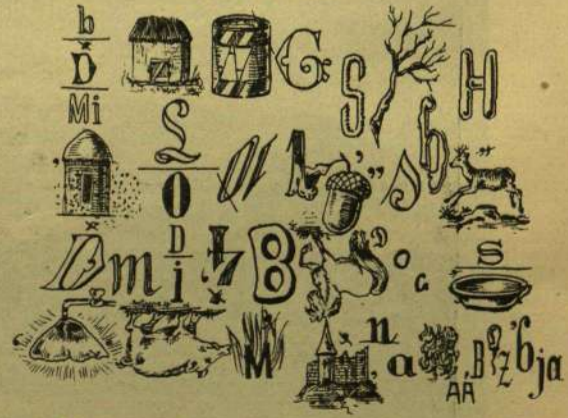 b
D
Mi
G S H
L
O
L ’ ,, s b ,,
D m D
i
B ’ o G S
M n , a AA , B z ’ b ja